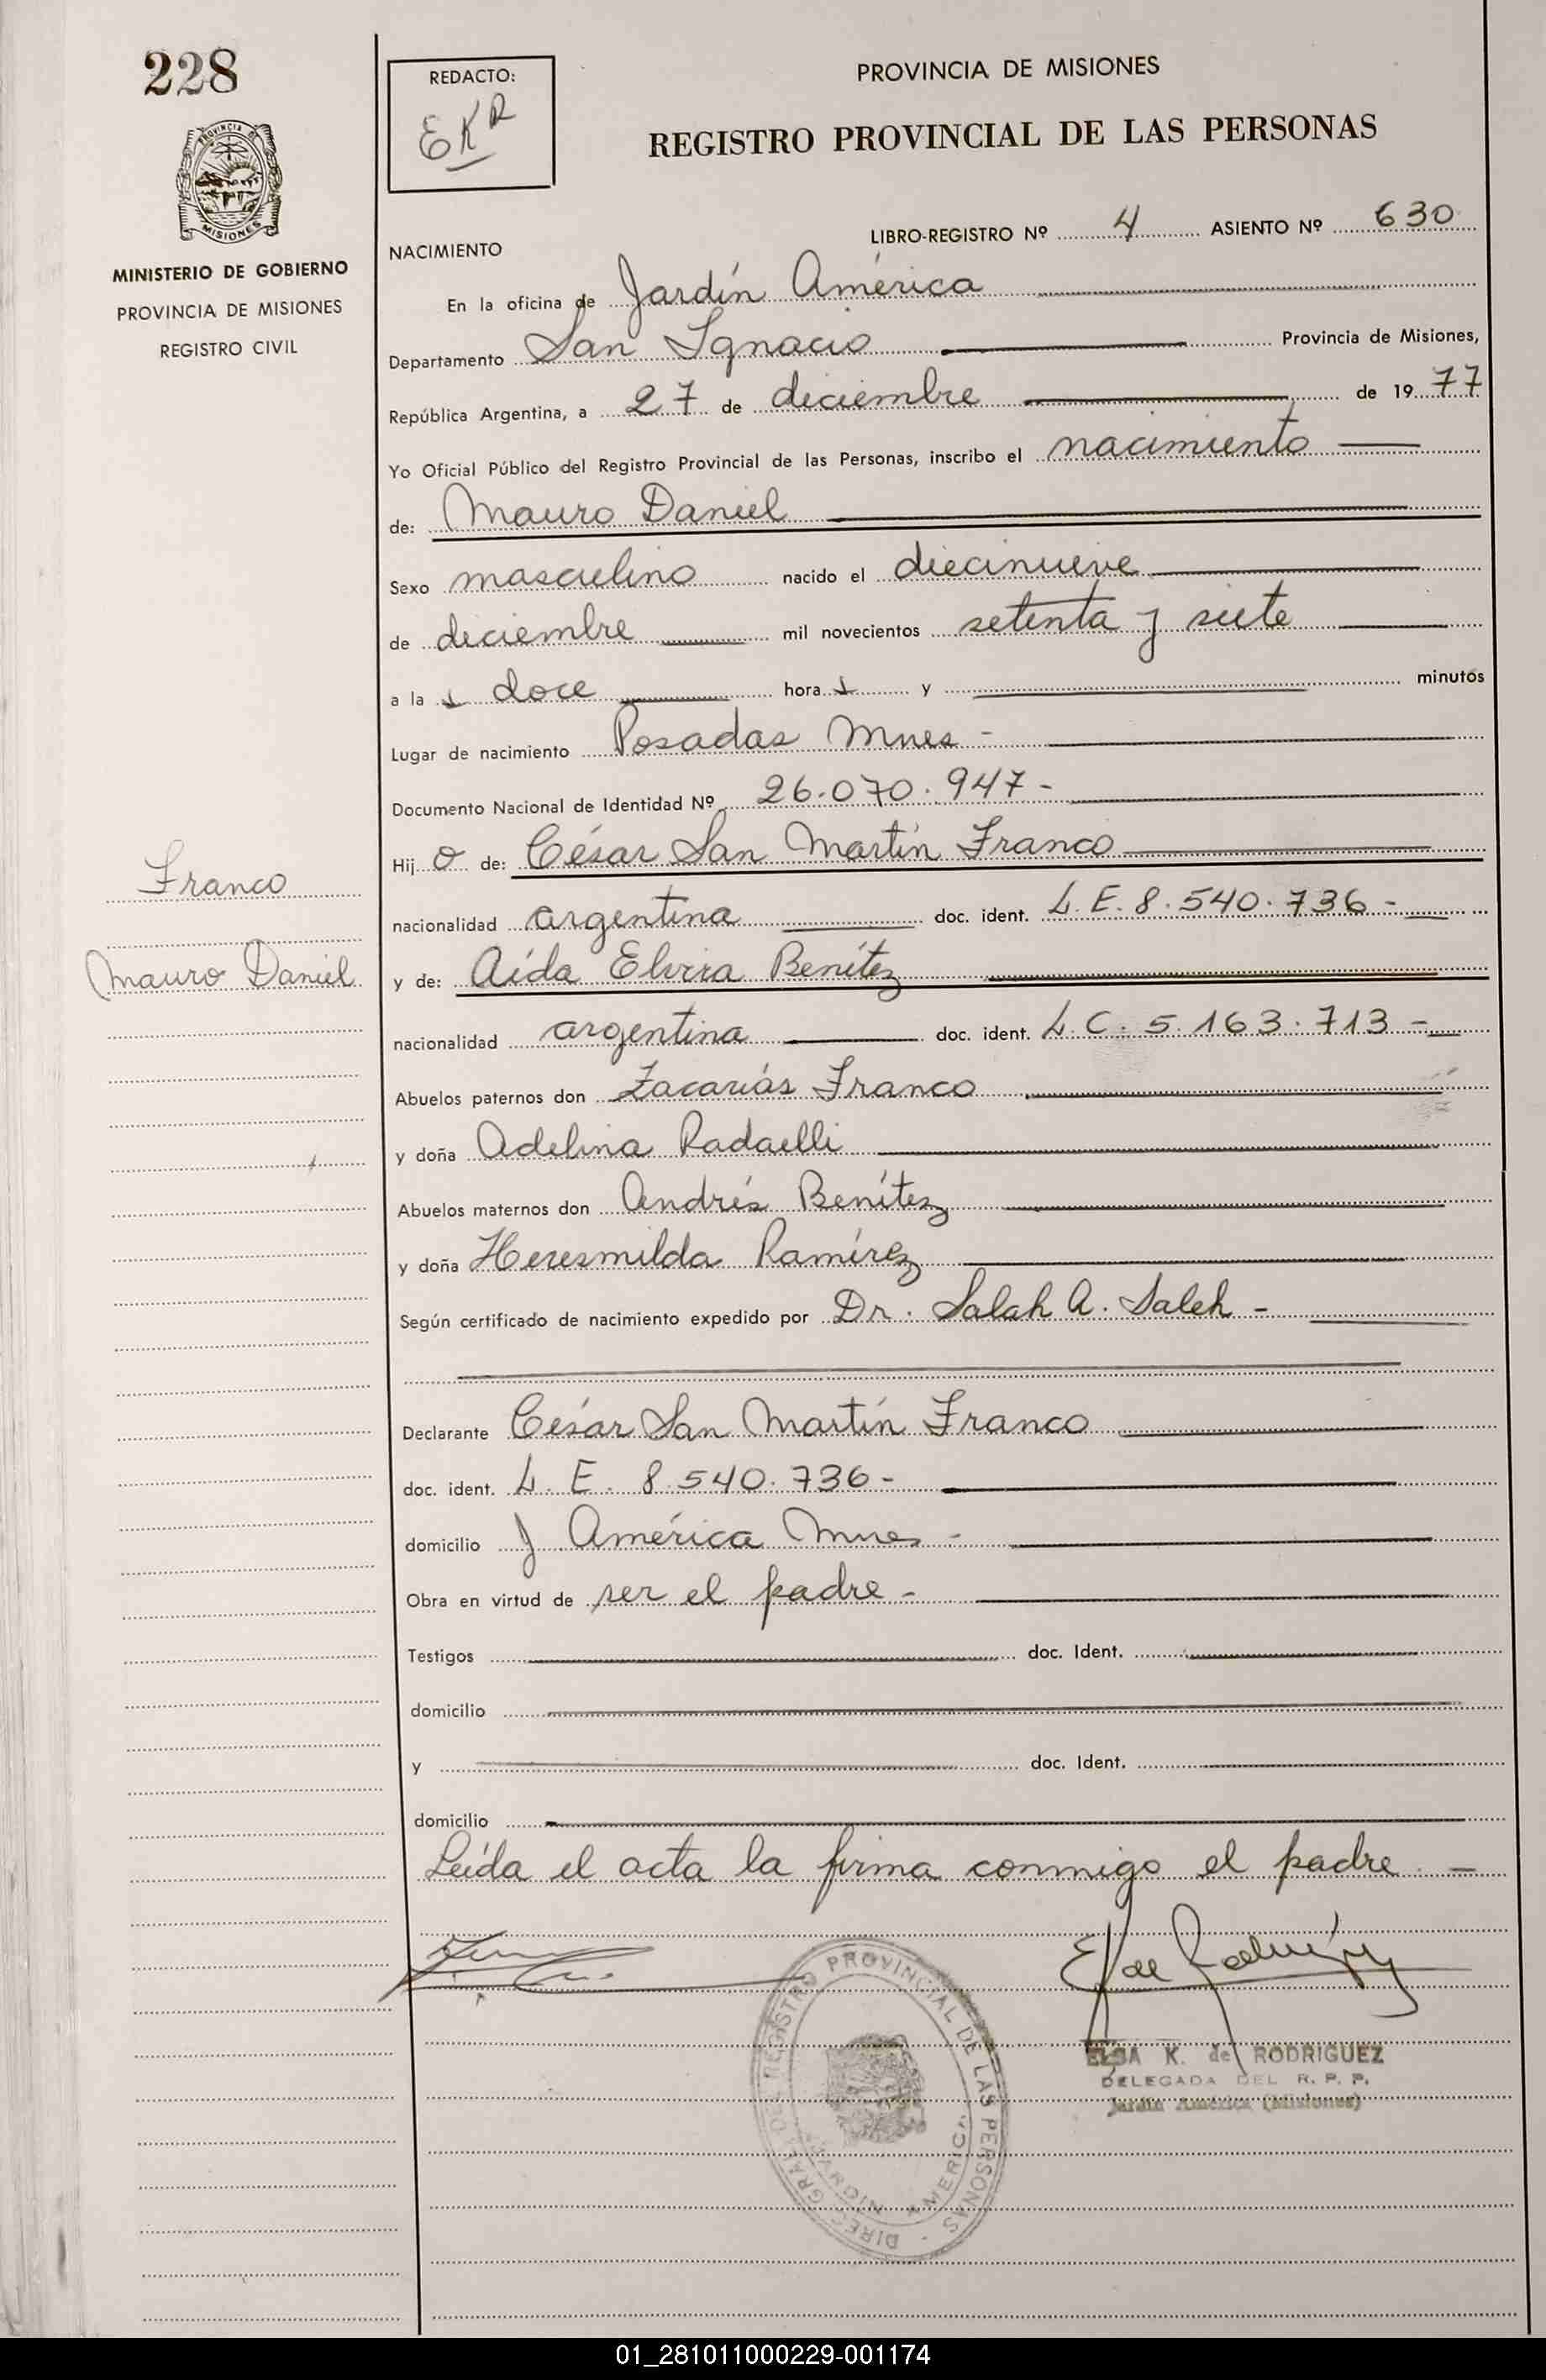 228
PROVINCIA DE
MISIONES
MINISTERIO DE GOBIERNO
PROVINCIA DE MISIONES
REGISTRO CIVIL
REDACTO:
EKR
PROVINCIA DE MISIONES
REGISTRO PROVINCIAL DE LAS PERSONAS
LIBRO-REGISTRO Nº 4 ASIENTO Nº 630
NACIMIENTO
En la oficina de Jardín América
Departamento San Ignacio Provincia de Misiones,
República Argentina, a 27 de diciembre de 1977
Yo Oficial Público del Registro Provincial de las Personas, inscribo el nacimiento
de: Mauro Daniel
Sexo masculino nacido el diecinueve
de diciembre mil novecientos setenta y siete
a la s doce hora s y minutos
Lugar de nacimiento Posadas Mnes -
Documento Nacional de Identidad Nº 26.070.947-
Hijo de: César San Martín Franco
nacionalidad argentina doc. ident. L.E. 8.540.736-
y de: Aída Elvira Benítez
nacionalidad argentina doc. ident. L.C. 5.163.713-
Abuelos paternos don Zacarías Franco
y doña Adelina Radaelli
Abuelos maternos don Andrés Benítez
y doña Heresmilda Ramírez
Según certificado de nacimiento expedido por Dr. Salah A. Saleh -
Declarante César San Martín Franco
doc. ident. L.E. 8.540.736-
domicilio J América Mnes -
Obra en virtud de ser el padre -
Testigos doc. Ident.
domicilio
y doc. Ident.
domicilio
Leída el acta la firma conmigo el padre. -
Franco
Mauro Daniel
E K de Rodríguez
ELSA K. de RODRIGUEZ
DELEGADA DEL R. P. P.
Jardín América (Misiones)
DIREC. GRAL. DEL REGISTRO PROVINCIAL DE LAS PERSONAS -
JARDIN AMERICA
01_281011000229-001174